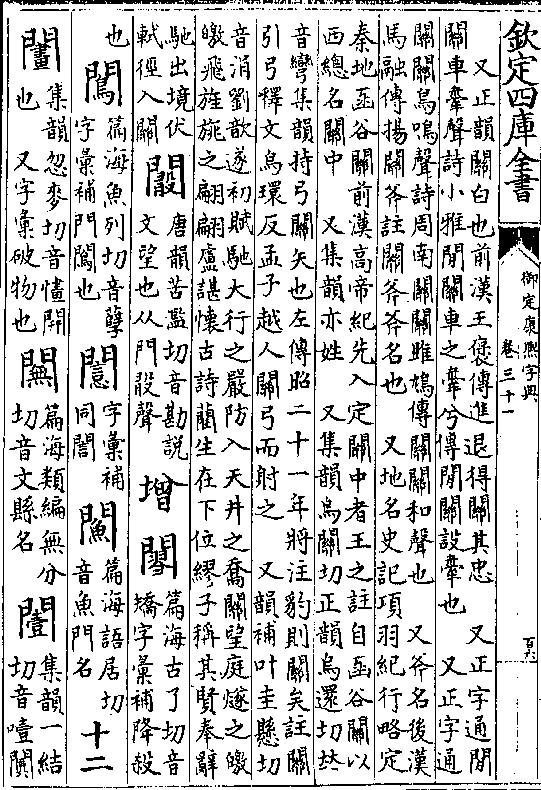 欽定四庫全書
御定康熙字典
卷三十一
又正韻關白也前漢王襃傳進退得關其忠 又正字通閒
關車舝聲詩小雅閒關車之舝兮傳閒關設舝也 又正字通
關關鳥鳴聲詩周南關關雎鳩傳關關和聲也 又斧名後漢
馬融傳揚關斧註關斧斧名也 又地名史記項羽紀行略定
秦地函谷關前漢高帝紀先入定關中者王之註自函谷關以
西總名關中 又集韻亦姓 又集韻烏關切正韻烏還切𠀤
音彎集韻持弓關矢也左傳昭二十一年將注豹則關矣註關
引弓釋文烏環反孟子越人關弓而射之 又韻補叶圭懸切
音涓劉歆遂初賦馳大行之嚴防入天井之喬關望庭燧之皦
皦飛旌旄之翩翩盧諶懷古詩藺生在下位繆子稱其賢奉辭
馳出境伏
軾徑入關 䦭 唐韻苦濫切音勘說
文望也从門㪣聲 增 䦯 篇海古了切音
矯字彙補降殺
也 䦰 篇海魚列切音孽
字彙補門䦰也 䦭 字彙補
同誾 䦧 篇海語居切
音魚門名 十二
䦧 集韻忽麥切音㦎開
也 又字彙破物也 䦟 篇海類編無分
切音文縣名 䦡 集韻一結
切音噎闃